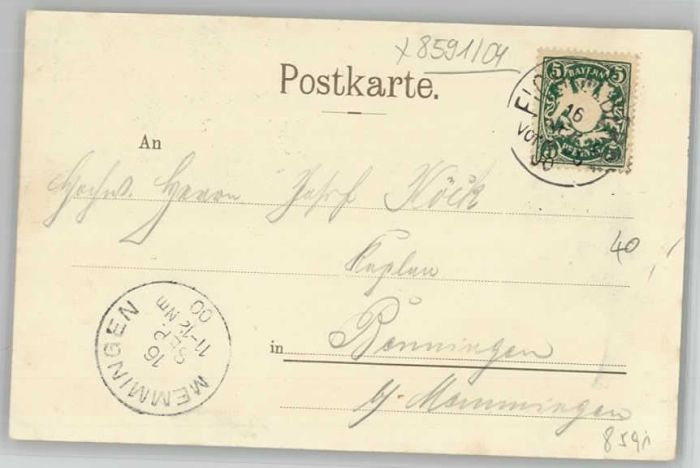 x 8591/04
Postkarte.
5 BAYERN 5
16
Vor
00
An
Hochw. Herrn Josef Köck
Kaplan
40
in Benningen
b/ Memmingen
MEMMINGEN
16
SEP.
11-12 Nm
00
8591